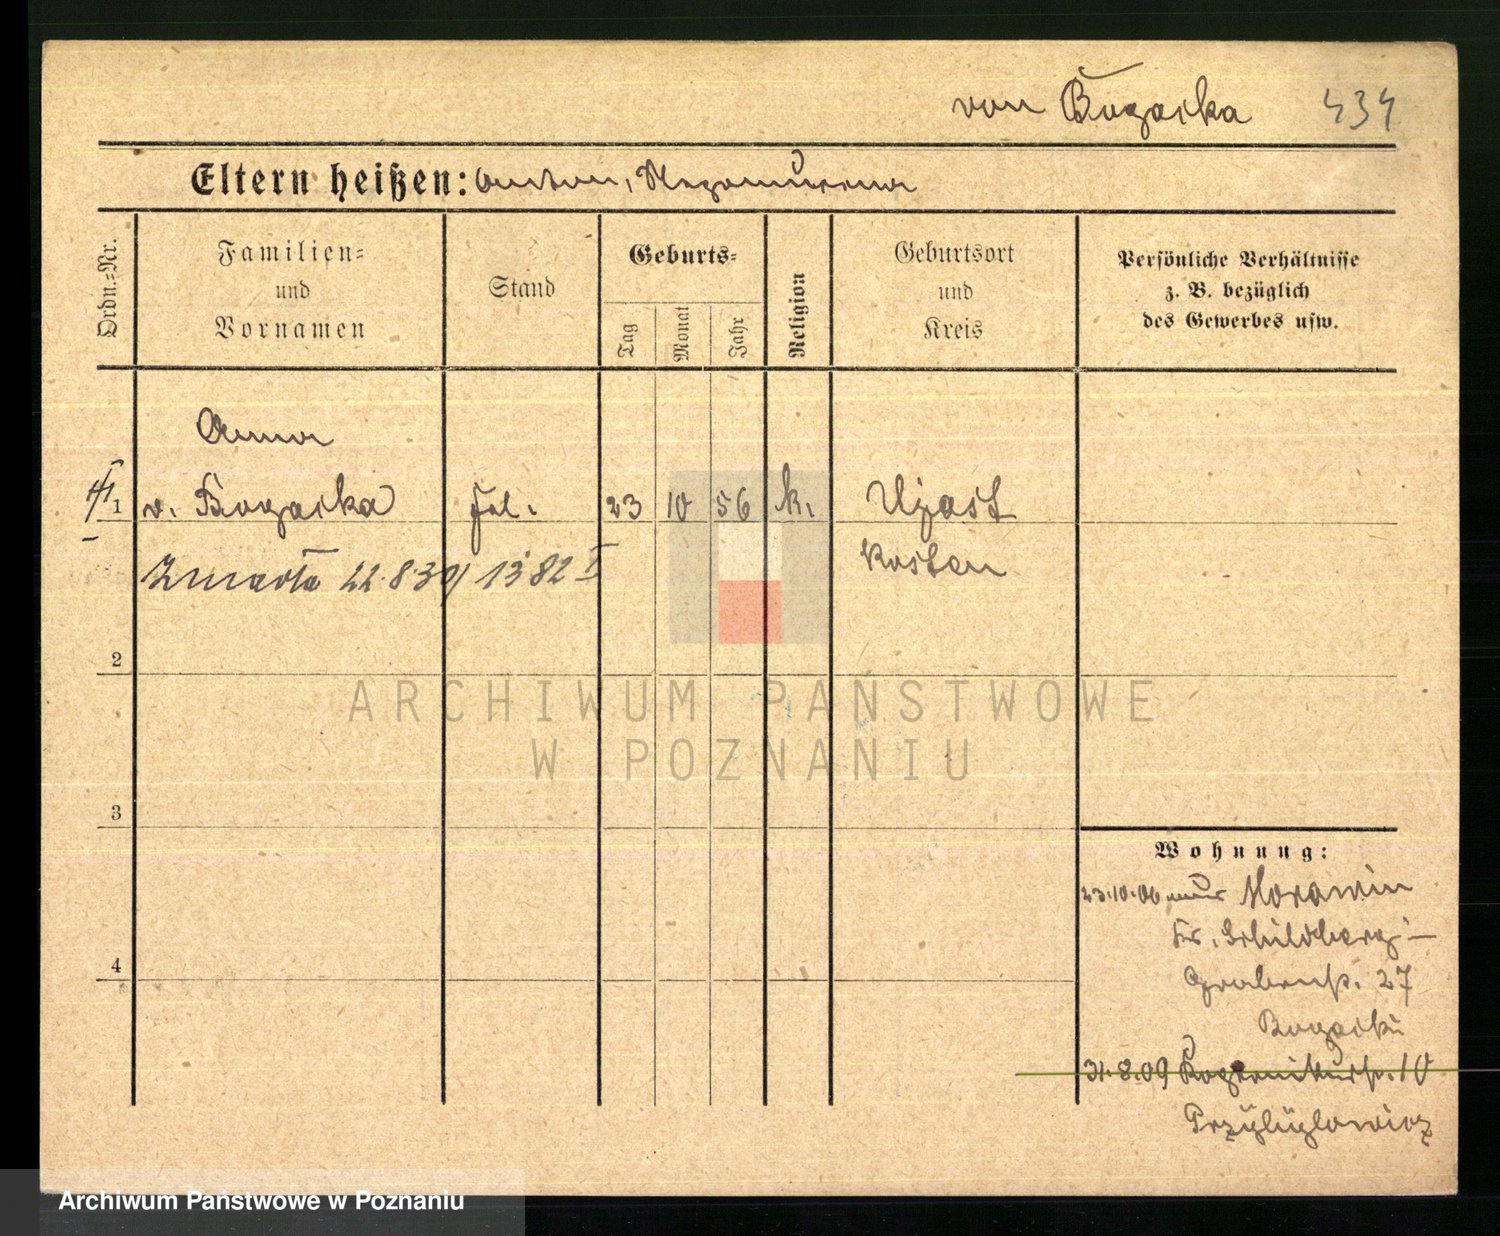 von Bogacka 434
Eltern heißen: Anton, Nepomucena
Ordn.=Nr.
Familien=
und
Vornamen
Stand
Geburts=
Tag
Monat
Jahr
Religion
Geburtsort
und
Kreis
Persönliche Verhältnisse
z. B. bezüglich
des Gewerbes usw.
Anna
1 v. Bogacka Frl. 23 10 56 k. Ujast
Kosten
Zmarła 22.8.39
2
3
4
Wohnung:
23.10.06 aus Morawin
Kr. Schildberg
Grabenstr. 27
Bogacki
31.8.09 10
ARCHIWUM PAŃSTWOWE
W POZNANIU
Archiwum Państwowe w Poznaniu